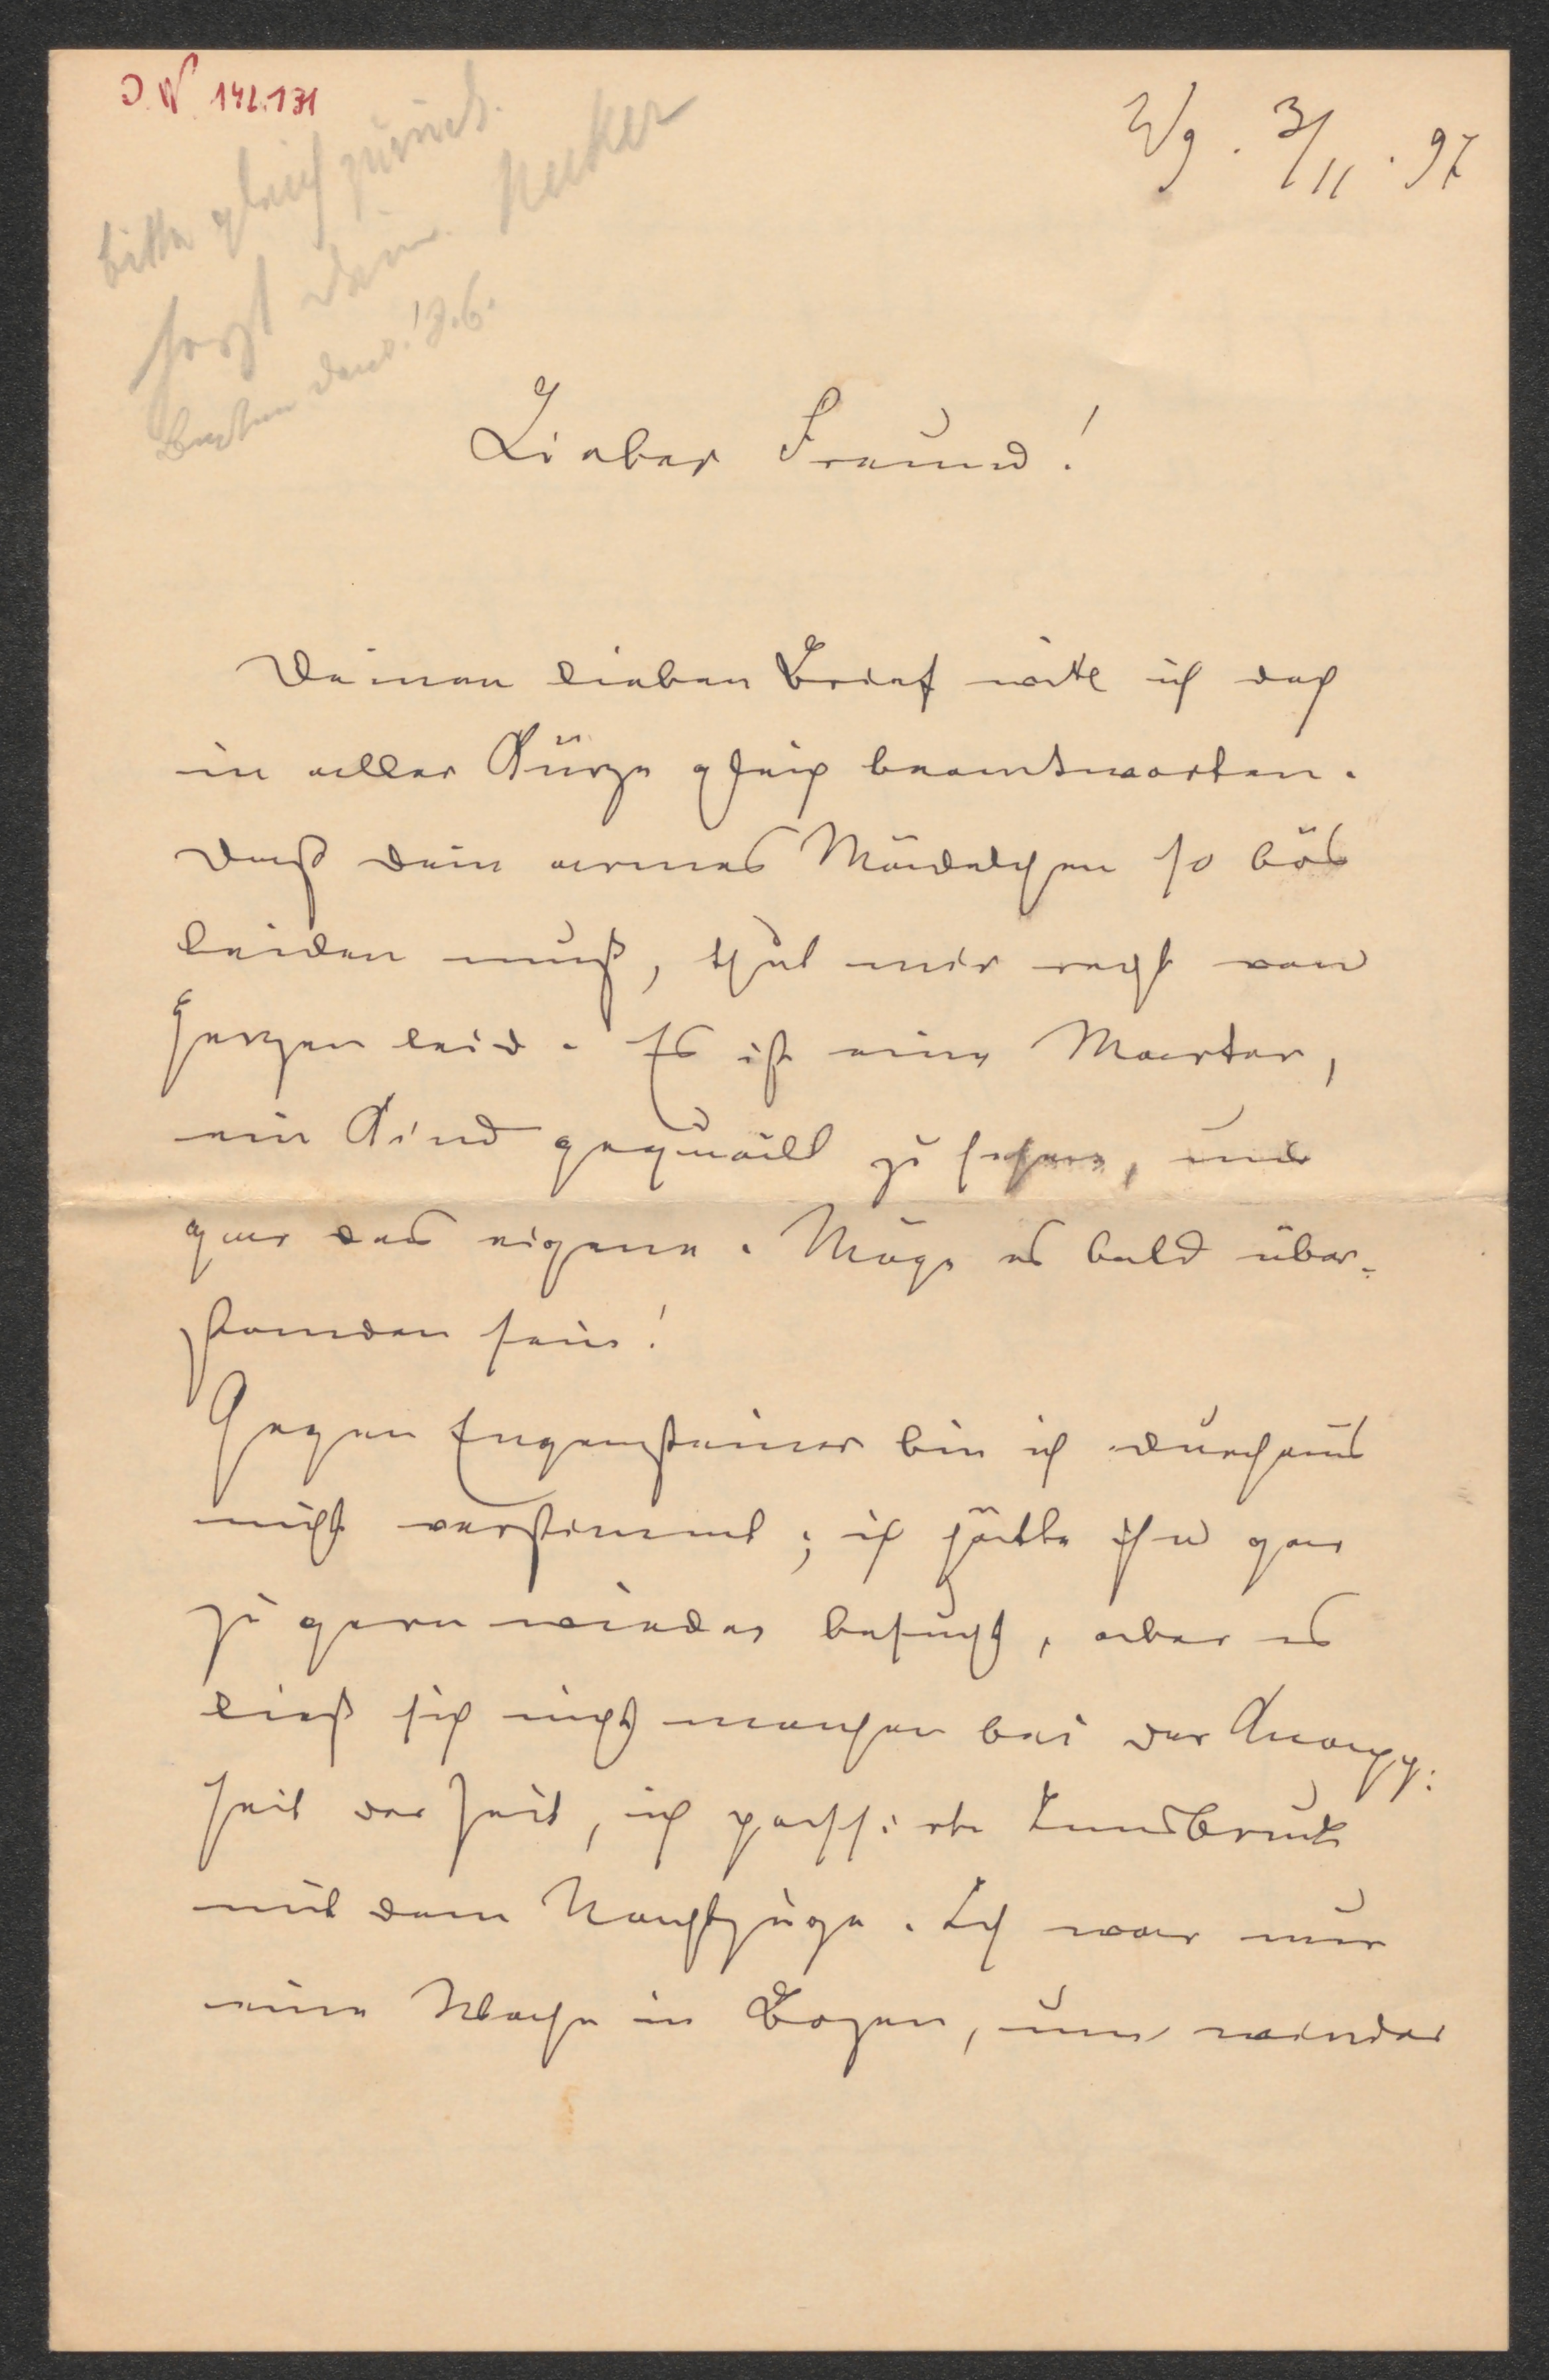 I.N. 142.131
Wg. 3/11.97
bitte gleich zurück.
Lieber Freund!
Deinen lieben Brief will ich doch
in aller Kürze gleich beantworten.
Daß dein armes Mädelchen so bös
leiden muß, thut mir recht von
Herzen leid. Es ist eine Marter,
ein Kind gequält zu sehen, und
gar das eigene. Möge es bald über-
standen sein!
Gegen Enzensteiner bin ich durchaus
nicht verstimmt; ich hätte ihn gar
zu gern wieder besucht, aber es
ließ sich nicht machen bei der Knapp-
heit der Zeit, ich passirte Innsbruck
mit dem Nachtzuge. Ich war nur
eine Woche in Bozen, um wieder